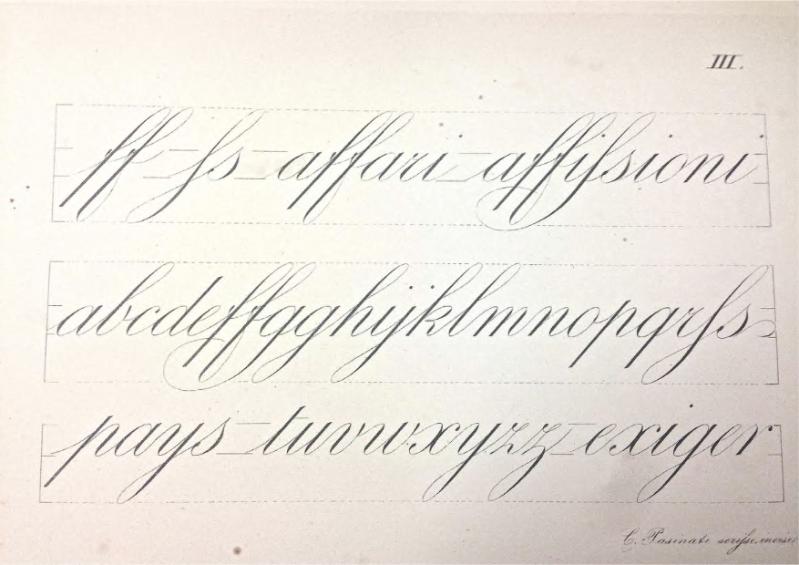 III.
ff ſs affari affiſsioni
abcdeffgghijklmnopqrſs
pays tuvwxyzz exiger
C. Pasinati scriſse,